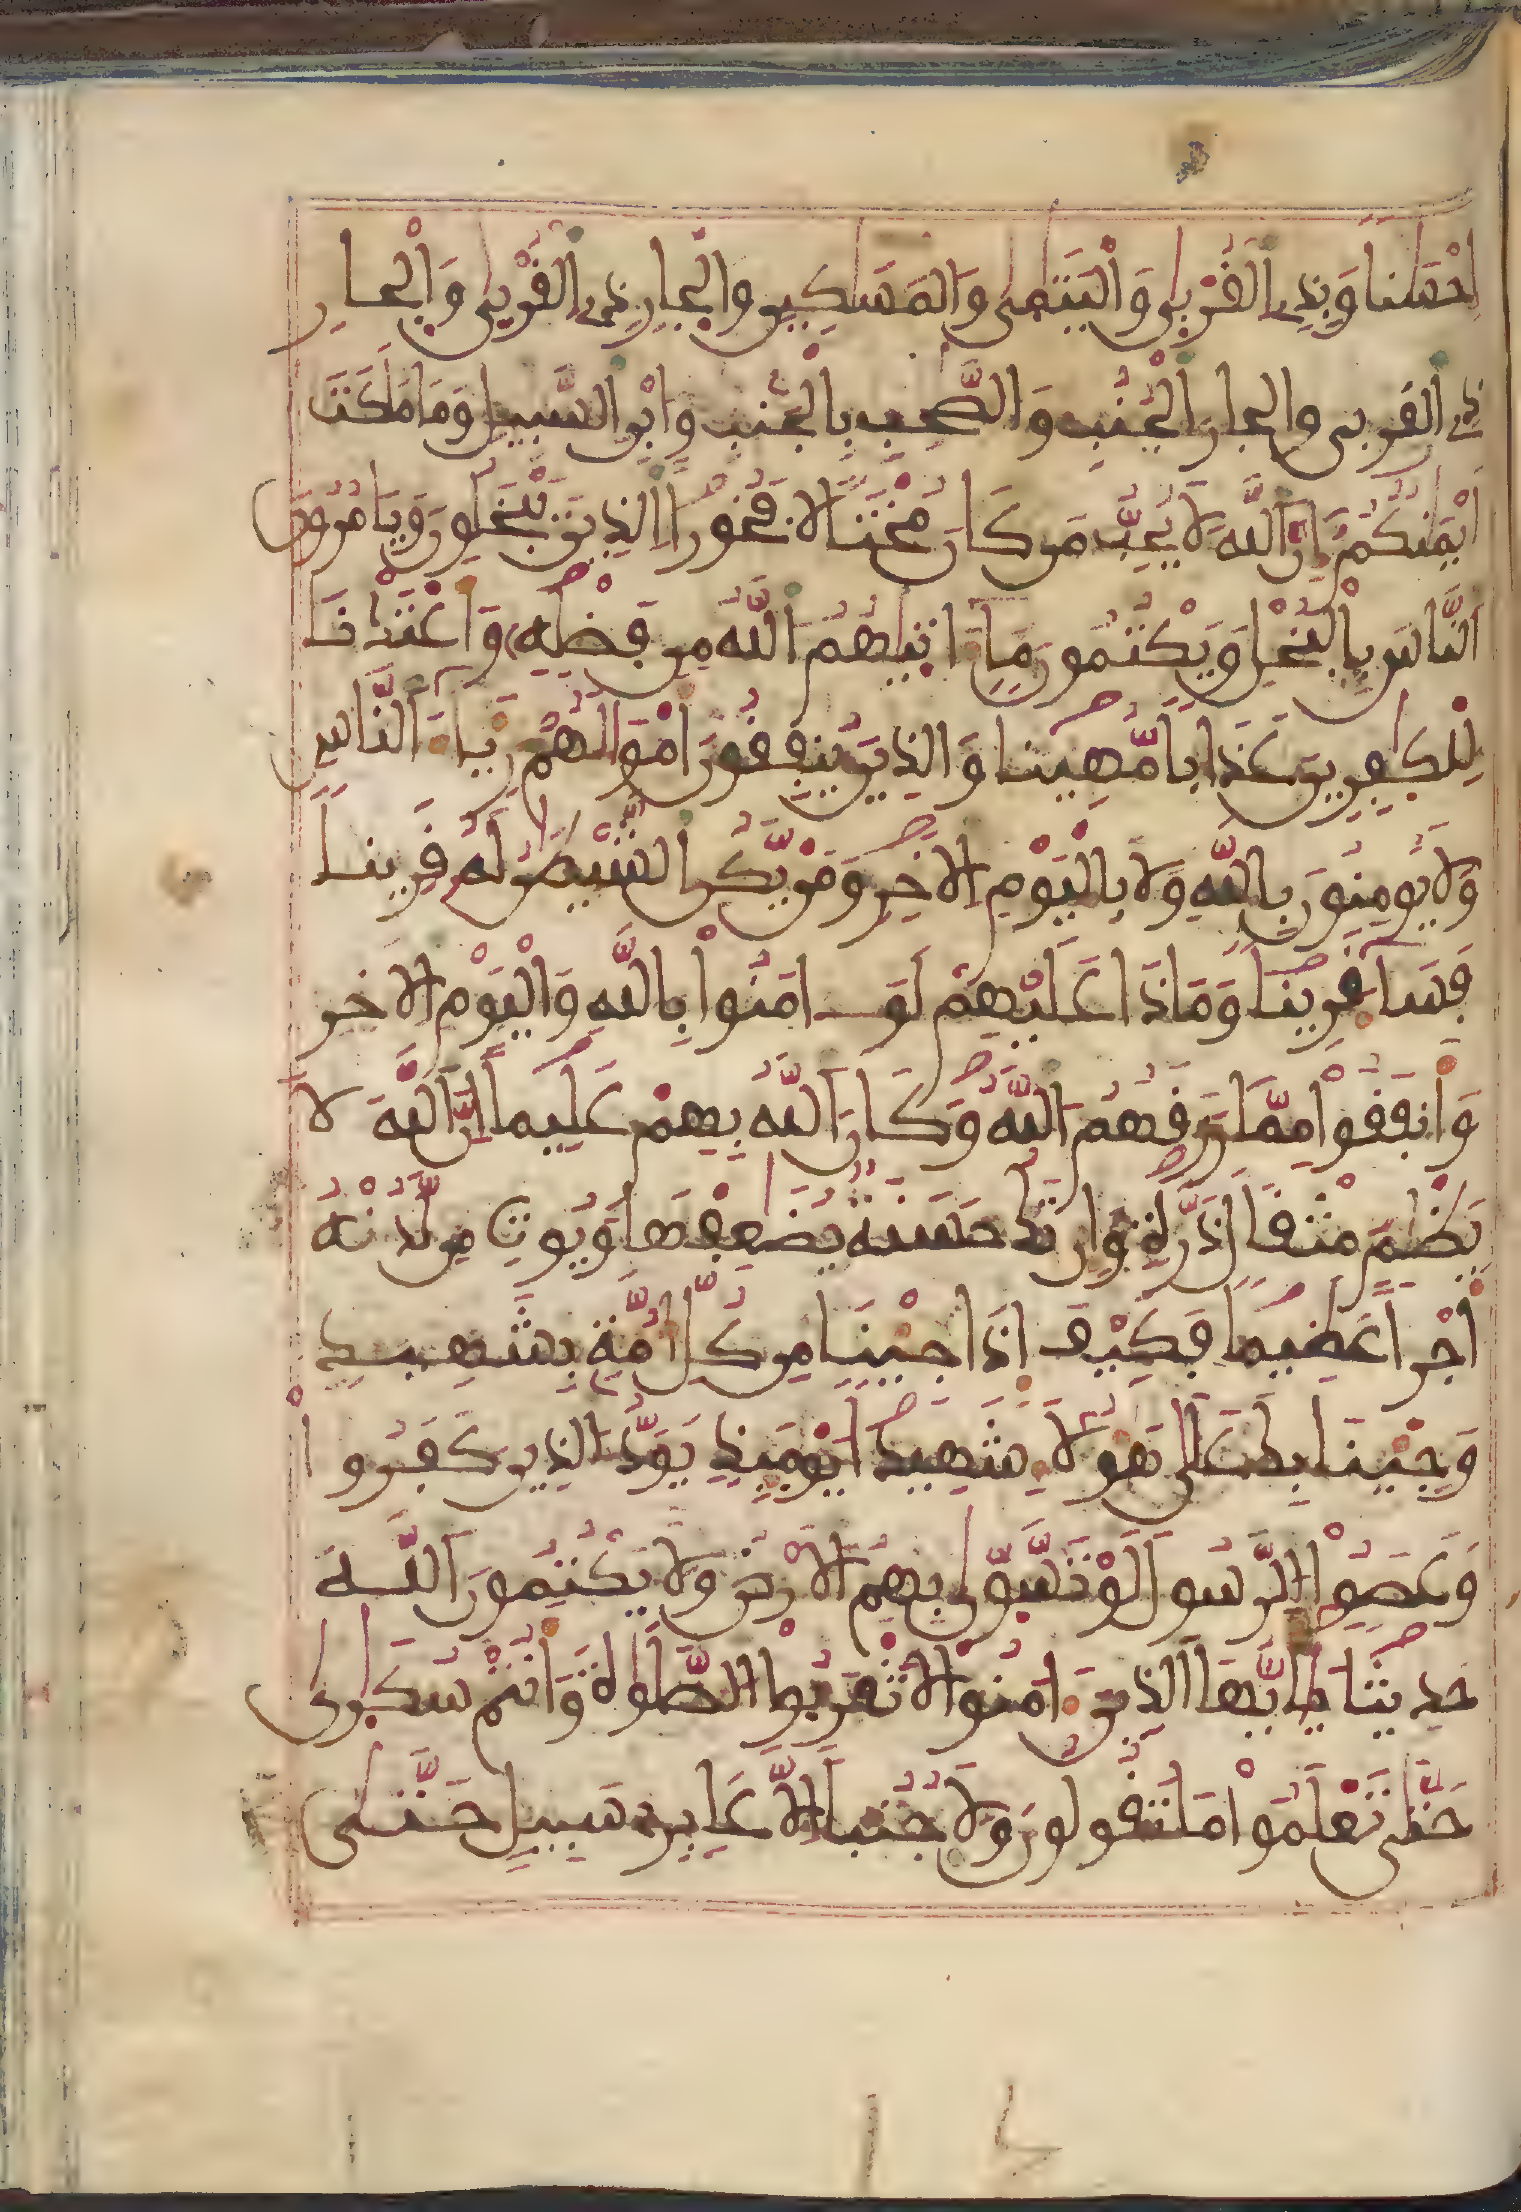 احسنا وبذى القربى واليتمى والمسكين والجار ذى القربى والجار
ذى القربى والجار الجنب والصحب بالجنب وابن السبيل وما ملكت
ايمنكم ان الله لا يحب من كان مختالا فخورا الذين يبخلون ويامرون
الناس بالبخل ويكتمون ما اتيهم الله من فضله واعتدنا
للكفرين عذابا مهينا والذين ينفقون امولهم رياء الناس
ولا يومنون بالله ولا باليوم الاخر ومن يكن الشيطن له قرينا
فسا قرينا وماذا عليهم لو امنوا بالله واليوم الاخر
وانفقوا مما رزقهم الله وكان الله بهم عليما ان الله لا
يظلم مثقال ذرة وان تك حسنة يضعفها ويوت من لدنه
اجرا عظيما فكيف اذا جينا من كل امة بشهيد
وجينا بك على هولاء شهيدا يوميذ يود الذين كفروا
وعصوا الرسول لو تسوى بهم الارض ولا يكتمون الله
حديثا يايها الذين ءامنوا لا تقربوا الصلوة وانتم سكرى
حتى تعلموا ما تقولون ولا جنبا الا عابرى سبيل حتى